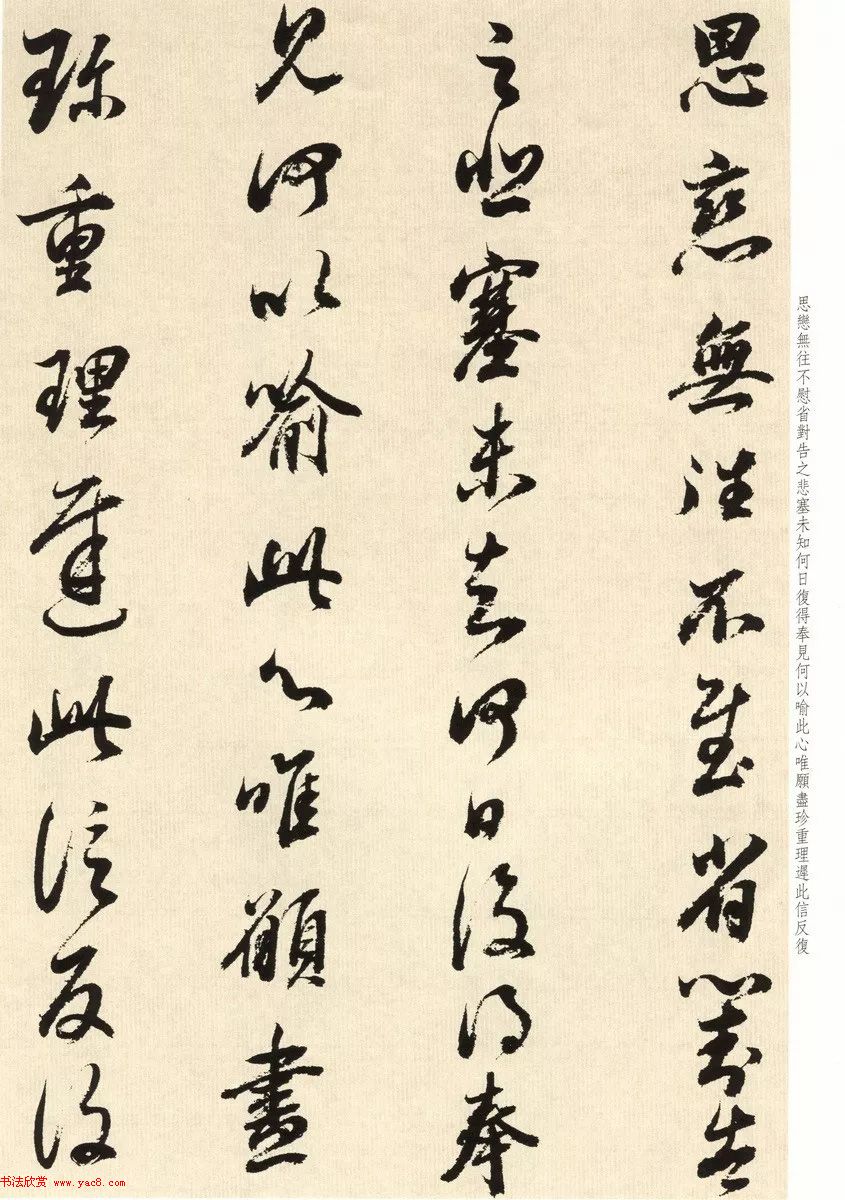 思戀無往不慰省對告
之悲塞未知何日復得奉
見何以喻此心唯願盡
珍重理遲此信反復
思戀無往不慰省對告之悲塞未知何日復得奉見何以喻此心唯願盡珍重理遲此信反復
书法欣赏 www.yac8.com